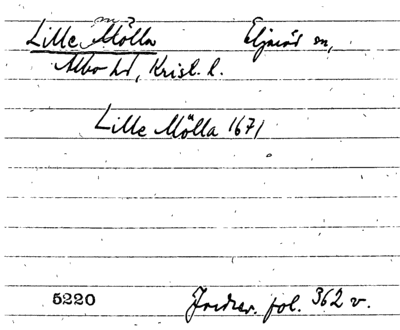 m ?
Lille Mölla Eljaröd sn,
Albo hd, Krist. l.
Lille Mölla 1671
5220 Jordrev. fol. 362 v.